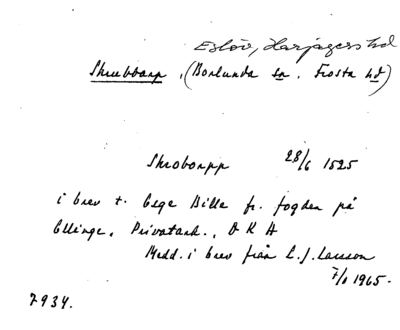 Eslöv, Harjagers hd
Skrubbarp, (Borlunda sn. Frosta hd)
Skroborpp 28/6 1525
i brev t. Eege Bille fr. fogden på
Ellinge, Privatark., D K H
Medd. i brev från L.J. Larsson
7/1 1965.
7934.